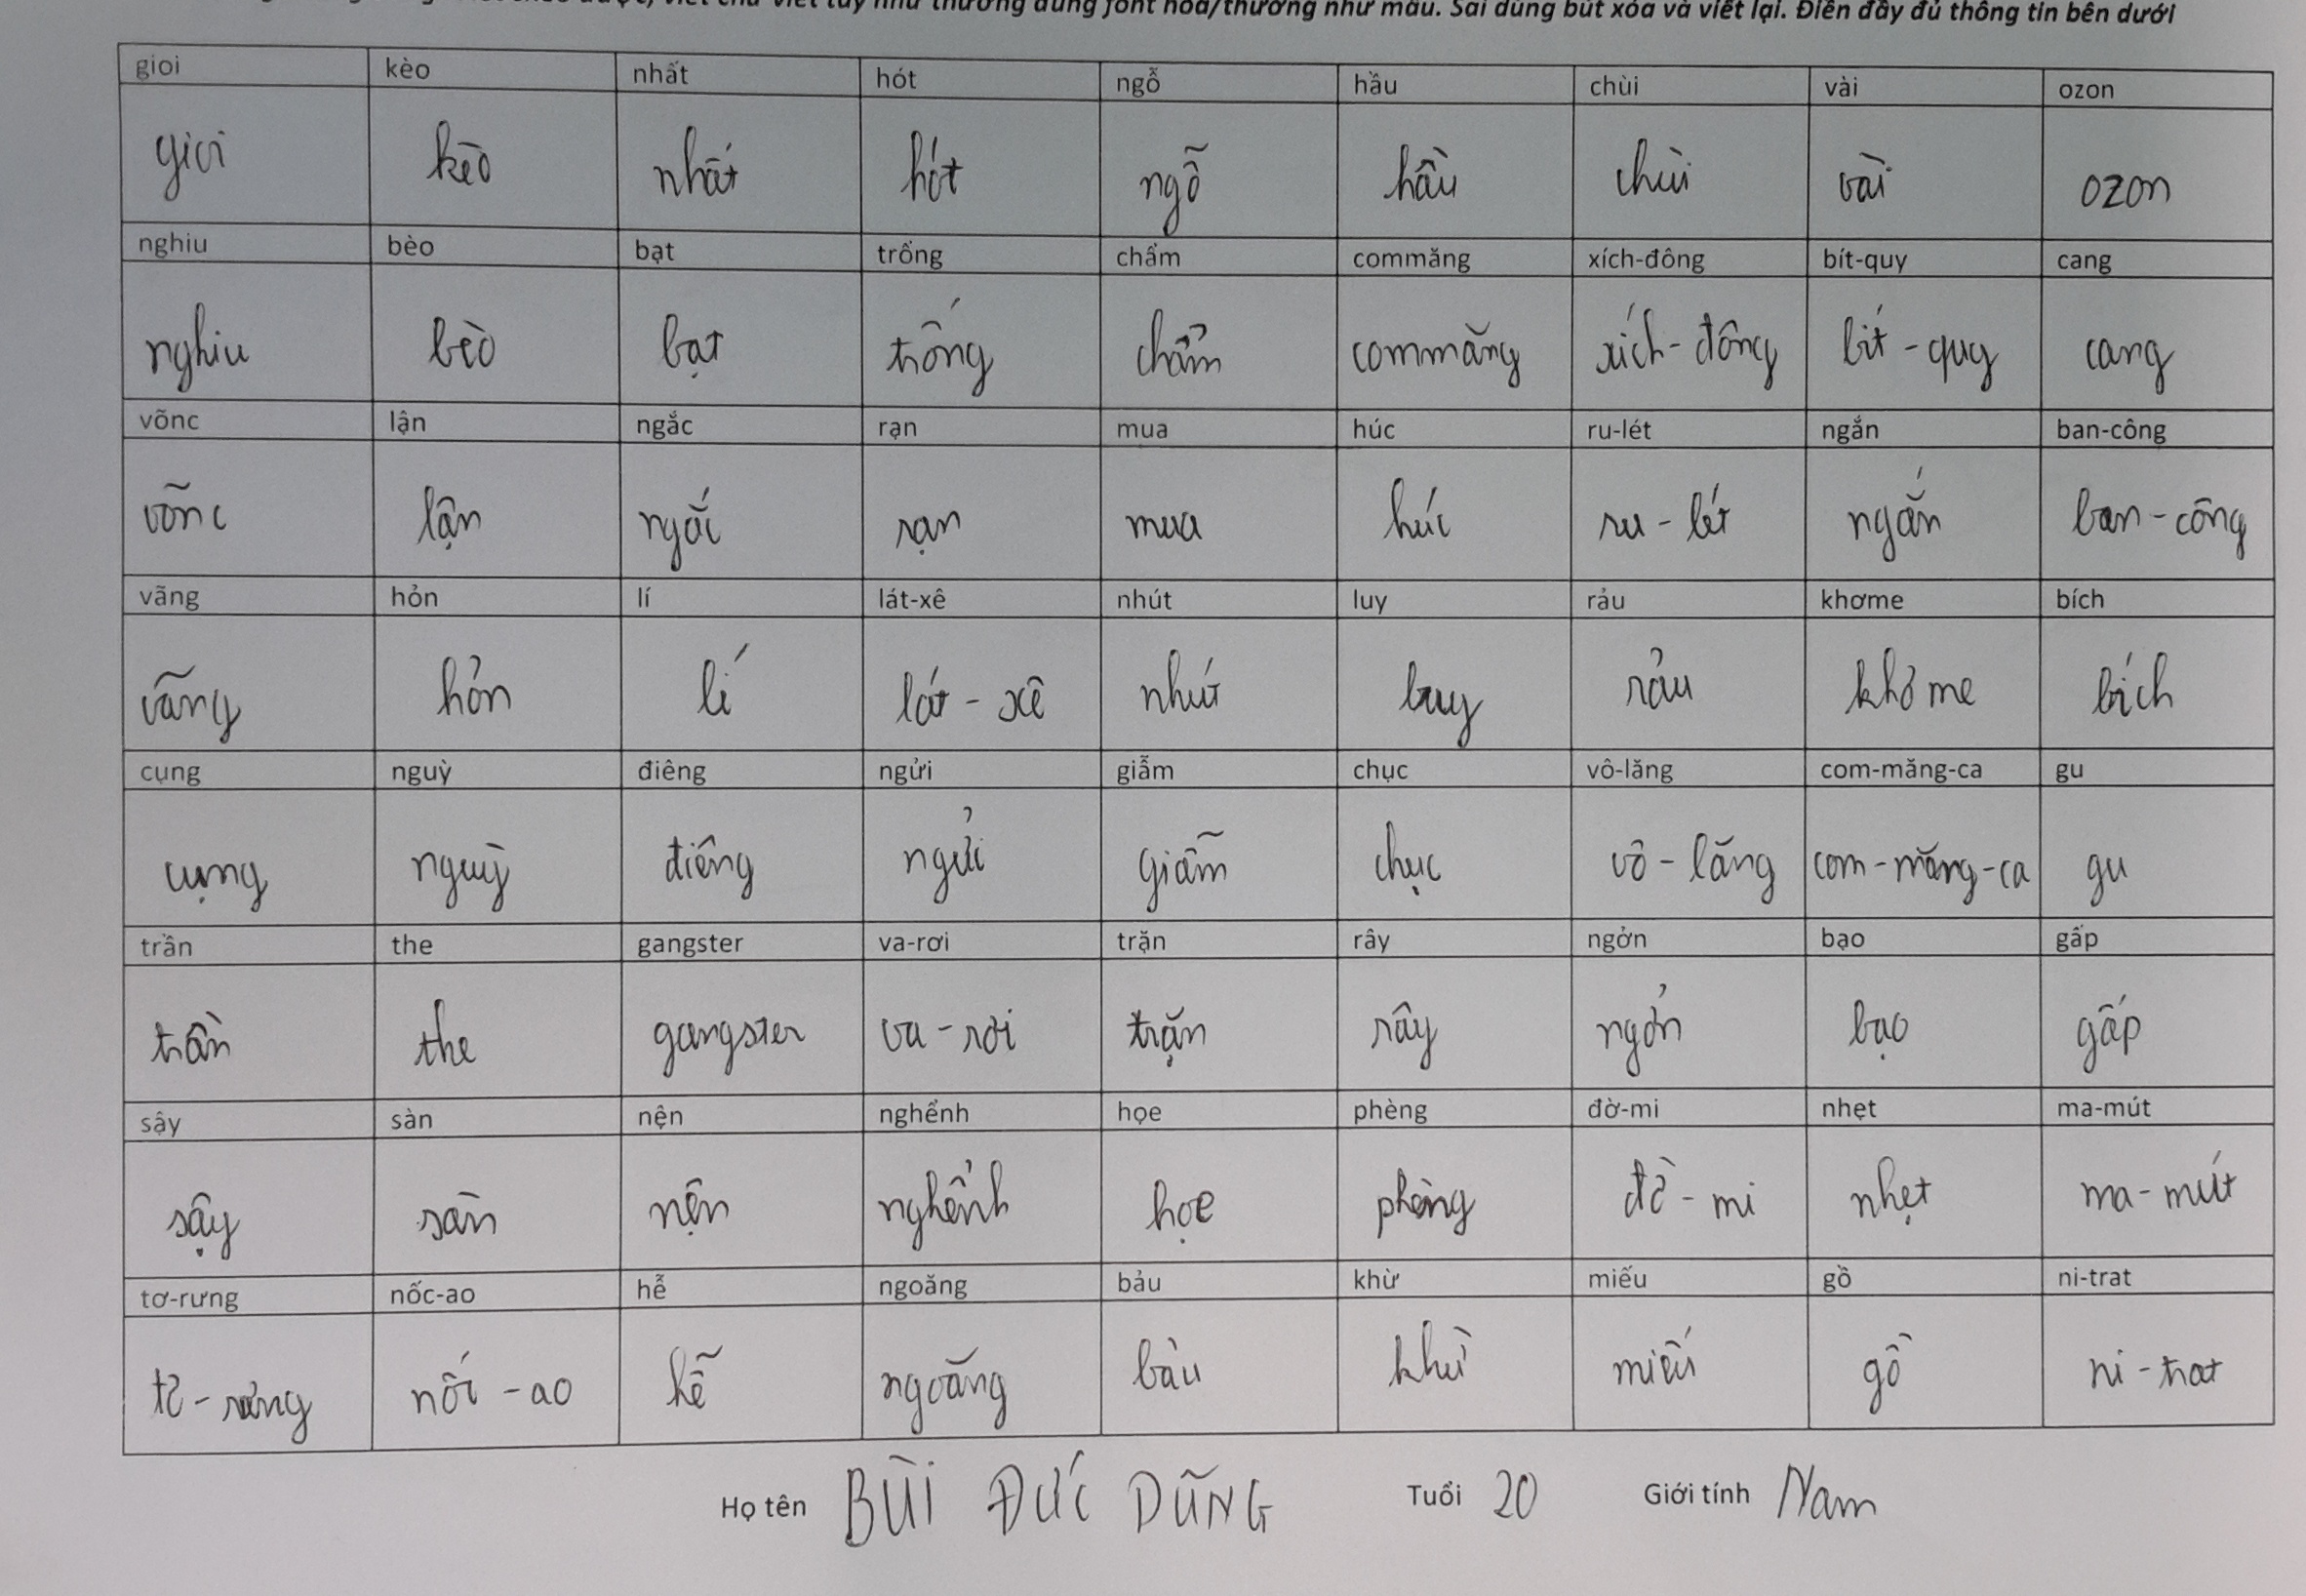 viết chữ viết tay như thường dùng font hoa/thường như mẫu. Sai dùng bút xóa và viết lại. Điền đầy đủ thông tin bên dưới
gioi kèo nhất hót ngỗ hầu chùi vài ozon
gioi kèo nhất hót ngỗ hầu chùi vài ozon
nghiu bèo bạt trống chẩm commăng xích-đông bít-quy cang
nghiu bèo bạt trống chẩm commăng xích-đông bít-quy cang
võnc lận ngắc rạn mua húc ru-lét ngắn ban-công
võnc lận ngắc rạn mua húc ru-lét ngắn ban-công
vãng hỏn lí lát-xê nhút luy rảu khơme bích
vãng hỏn lí lát-xê nhút luy rảu khơme bích
cụng nguỳ điêng ngửi giẫm chục vô-lăng com-măng-ca gu
cụng nguỳ điêng ngửi giẫm chục vô-lăng com-măng-ca gu
trần the gangster va-rơi trặn rây ngởn bạo gấp
trần the gangster va-rơi trặn rây ngởn bạo gấp
sậy sàn nện nghểnh họe phèng đờ-mi nhẹt ma-mút
sậy sàn nện nghểnh họe phèng đờ-mi nhẹt ma-mút
tơ-rưng nốc-ao hễ ngoăng bảu khừ miếu gồ ni-trat
tơ-rưng nốc-ao hễ ngoăng bảu khừ miếu gồ ni-trat
Họ tên BÙI ĐỨC DŨNG Tuổi 20 Giới tính Nam